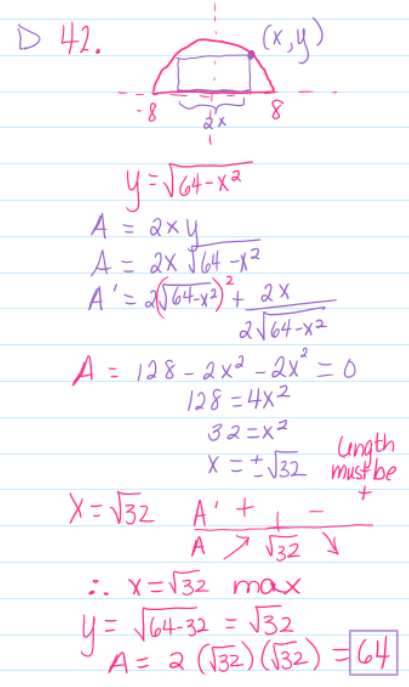 D 42.
(x,y)
-8 8
2x
y = √(64-x²)
A = 2xy
A = 2x √(64-x²)
A' = 2(√(64-x²))² + 2x / 2√(64-x²)
A = 128 - 2x² - 2x² = 0
128 = 4x²
32 = x²
x = ±√32
length must be +
x = √32
A' + | -
A ↗ √32 ↘
∴ x = √32 max
y = √(64-32) = √32
A = 2 (√32)(√32) = 64